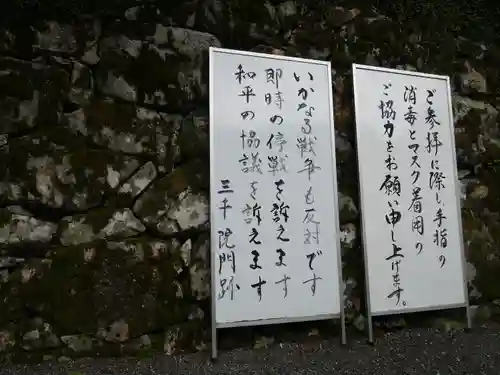 ご参拝に際し手指の
消毒とマスク着用の
ご協力をお願い申し上げます
いかなる戦争も反対です
即時の停戦を訴えます
和平の協議を訴えます
三千院門跡